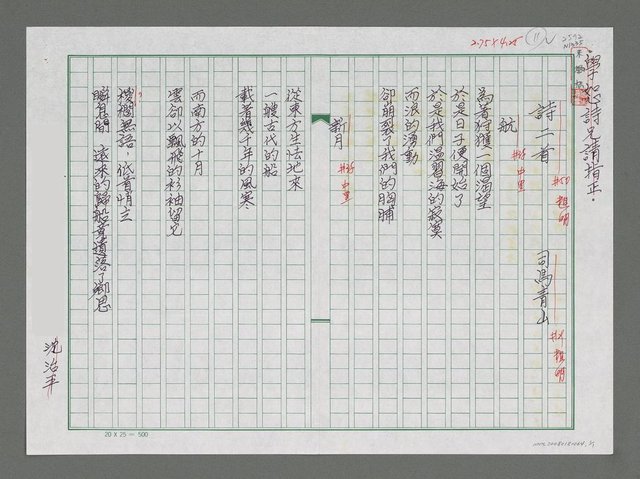 2.75×4.25
11
學忠詩兄請指正.
詩二首
#50 粗明
司馬青山
#24 粗明
航
#36 中黑
為著狩獲一個渴望
於是日子便開始了
於是我們溫習海的寂寞
而浪的湧動
卻崩裂了我們的胸脯
新月
#36 中黑
從東方生怯地來
一艘古代的船
載著幾千年的風寒
而南方的十月
雲卻以飄飛的衫袖留兄
欄無語，低首悄立
瞬息間 遠來的歸船竟遺落了鄉思
沈治平
20 X 25 = 500